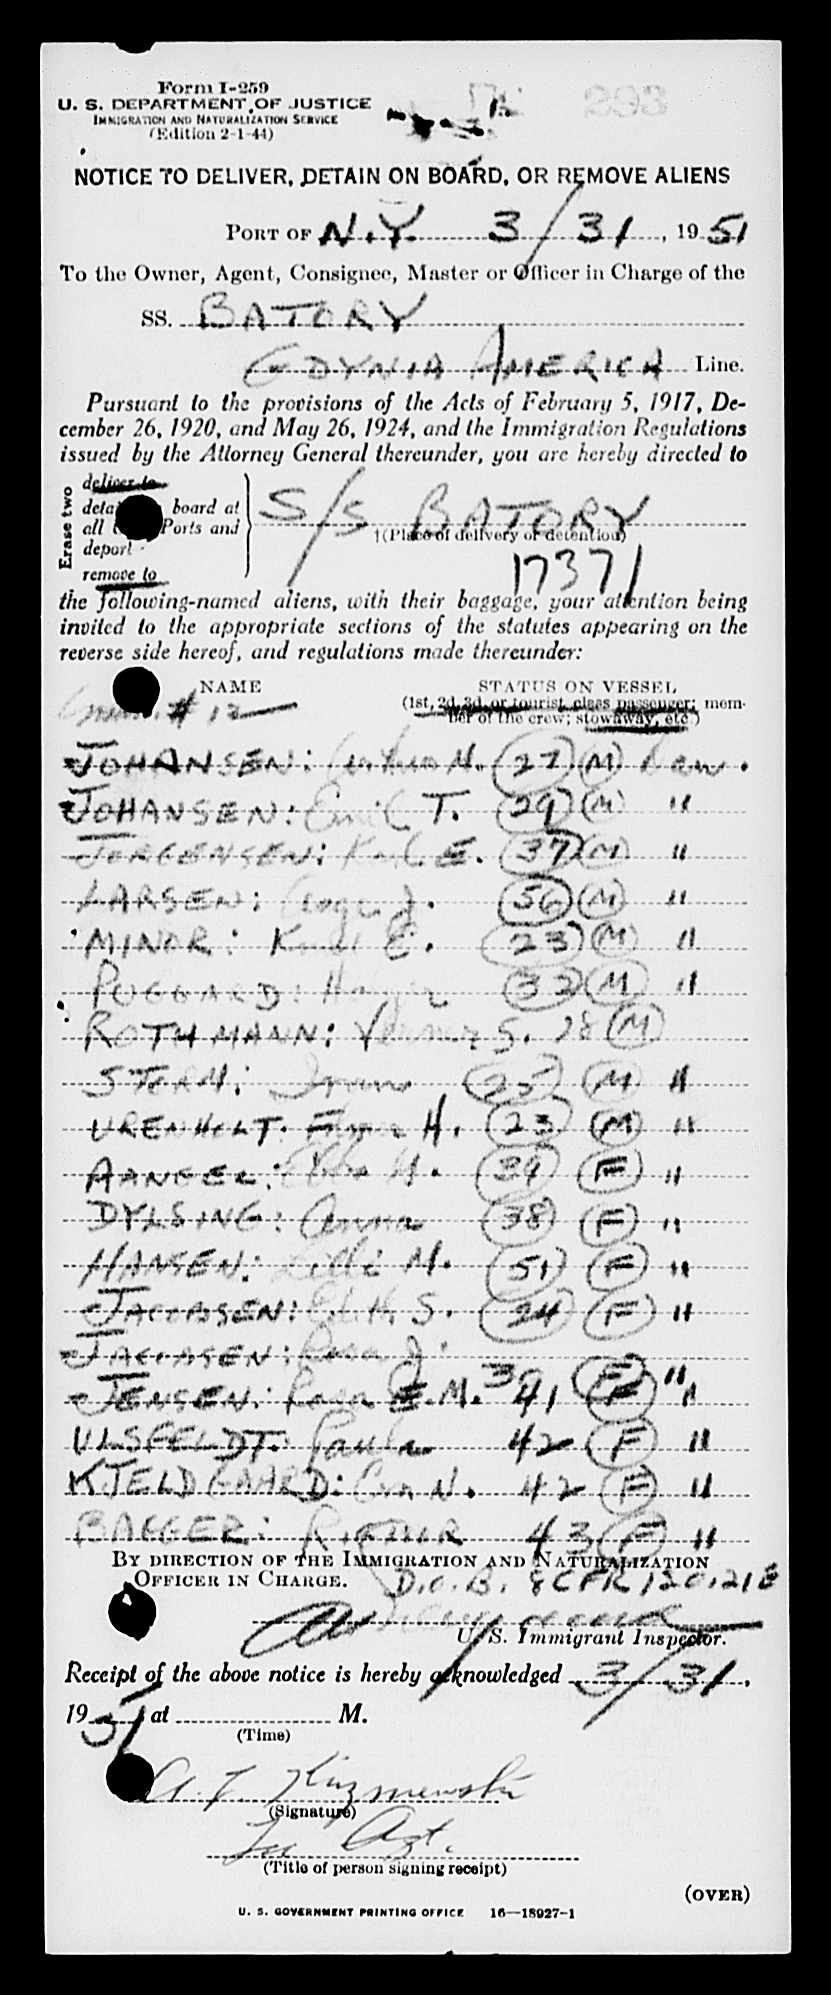 Form I-259
U. S. DEPARTMENT OF JUSTICE
IMMIGRATION AND NATURALIZATION SERVICE
(Edition 2-1-44)
293
NOTICE TO DELIVER, DETAIN ON BOARD, OR REMOVE ALIENS
PORT OF N.Y. 3/31, 1951
To the Owner, Agent, Consignee, Master or Officer in Charge of the
SS. BATORY
GDYNIA AMERICA Line.
Pursuant to the provisions of the Acts of February 5, 1917, De-
cember 26, 1920, and May 26, 1924, and the Immigration Regulations
issued by the Attorney General thereunder, you are hereby directed to
Erase two
deliver to
board at
all Ports and
deport
remove to
S/S BATORY
†(Place of delivery or detention)
17371
the following-named aliens, with their baggage, your attention being
invited to the appropriate sections of the statutes appearing on the
reverse side hereof, and regulations made thereunder:
NAME STATUS ON VESSEL
(1st, 2d, 3d, or tourist class passenger; mem-
ber of the crew; stowaway, etc.)
# 12
JOHANSEN: H. (27) (M)
JOHANSEN: Emil T. (29) (M) "
JORGENSEN: Karl E. (37) (M) "
LARSEN: Aage J. (56) (M) "
MINOR: Knud E. (23) (M) "
POGGARD: Holger (32) (M) "
ROTHMANN: Verner S. 28 (M)
STORM: (25) (M) "
URENHOLT: H. (23) (M) "
Ebba H. (39) (F) "
DYLSING: Anna (38) (F) "
HANSEN: Lilli M. (51) (F) "
JACOBSEN: Edith S. (24) (F) "
JACOBSEN: Rosa J. 39 (F) "
JENSEN: Rosa E.M. 41 (F) "
ULSFELDT: Paula 42 (F) "
KJELDGAARD: N. 42 (F) "
BAGGER: 43 (F) "
BY DIRECTION OF THE IMMIGRATION AND NATURALIZATION
OFFICER IN CHARGE. D.O.B. 8 CFR 120.21E
U. S. Immigrant Inspector.
Receipt of the above notice is hereby acknowledged 3/31,
1951 at M.
(Time)
(Signature)
Agt.
(Title of person signing receipt)
(OVER)
U. S. GOVERNMENT PRINTING OFFICE 16—18927-1